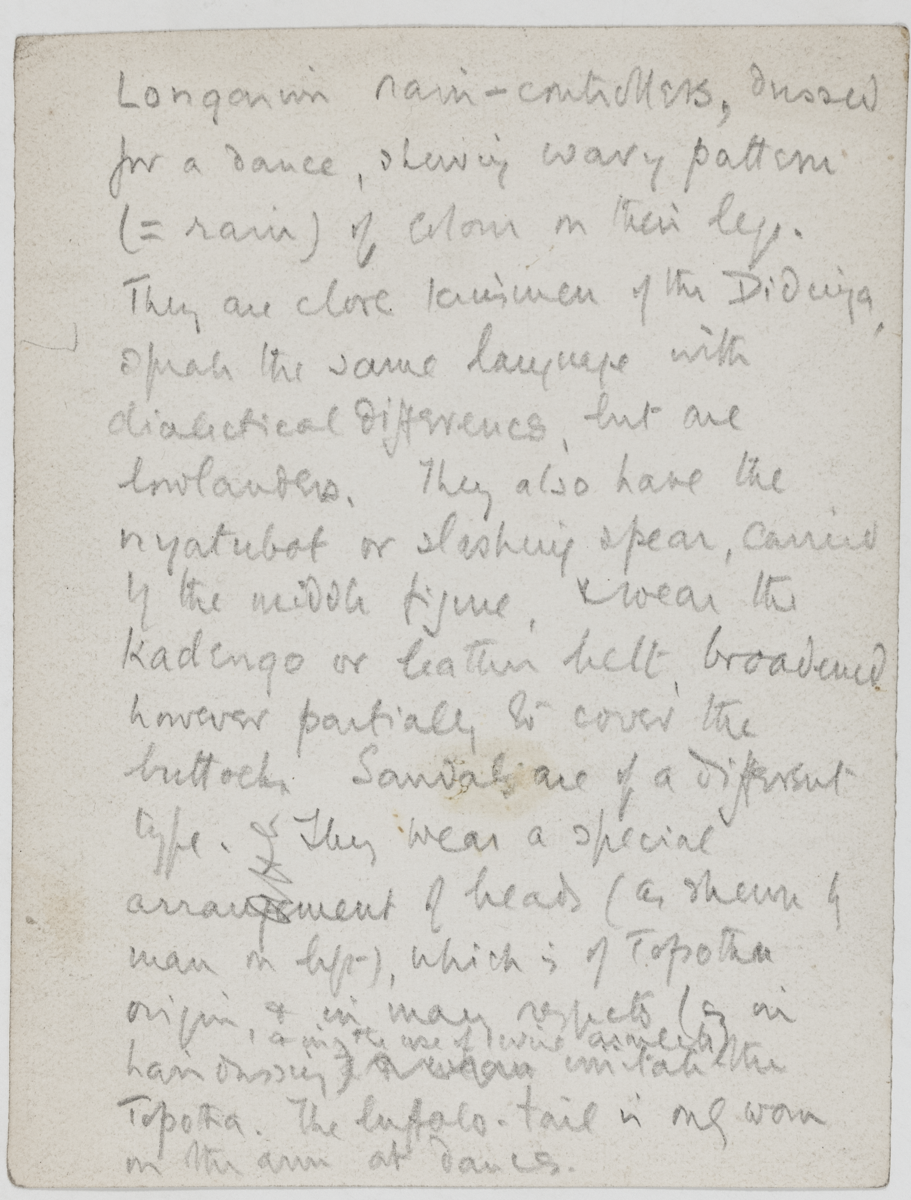 Longarim rain-controllers, dressed
for a dance, shewing wavy pattern
(= rain) of colour on their legs.
They are close kinsmen of the Didinga,
speak the same language with
dialectical differences, but are
lowlanders. They also have the
nyatubot or slashing spear, carried
by the middle figure, & wear the
Kadengo or leather belt, broadened
however partially to cover the
buttocks. Sandals are of a different
type. They wear a special
arrangement of beads (as shewn by
man on left), which is of Topotha
origin, & in many respects (as in
& in the use of wire armlets)
hair dressing) imitate the
Topotha. The buffalo-tail is only worn
on the arm at dances.